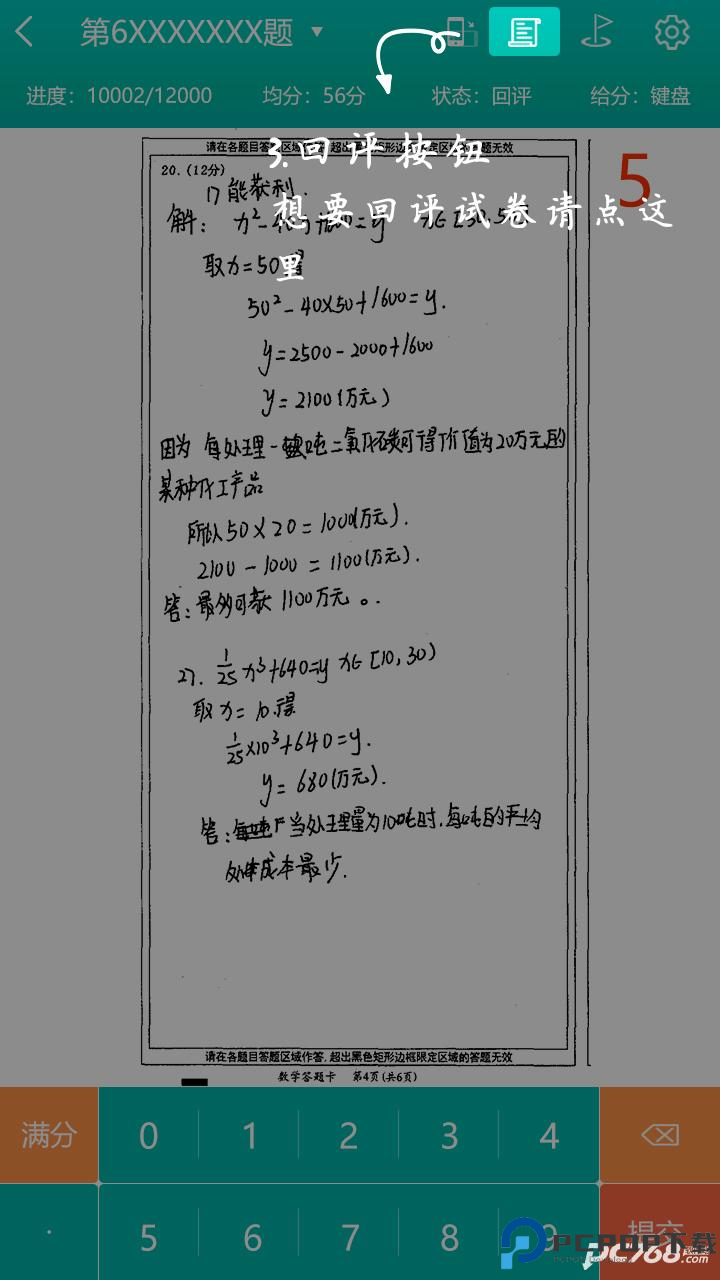 第6XXXXXXX题
进度：10002/12000 均分：56分 状态：回评 给分：键盘
请在各题目答题区域作答,超出黑色矩形边框限定区域的答题无效
3.回评按钮
想要回评试卷请点这
里
5
20.（12分）
1) 能获利.
解：
取x=50得
50²-40×50+1600=y.
y=2500-2000+1600
y=2100(万元)
因为 每处理一吨二氧化碳可得价值为20万元的
某种化工产品
所以50×20=1000(万元).
2100-1000=1100(万元).
答：最多可获 1100万元。.
2). 1/25 x³+640=y x∈[10,30)
取x=10.得
1/25×10³+640=y.
y=680(万元).
答：当处理量为10吨时,每吨的平均
处理成本最少.
请在各题目答题区域作答,超出黑色矩形边框限定区域的答题无效
数学答题卡 第4页(共6页)
满分 0 1 2 3 4
. 5 6 7 8 9 提交
PCPOP下载
pc768.com